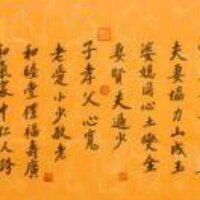 夫妻協力山成玉
婆媳同心土變金
妻賢夫過少
子孝父心寬
老愛小少敬老
和睦堂禮福壽廣
家中仁人